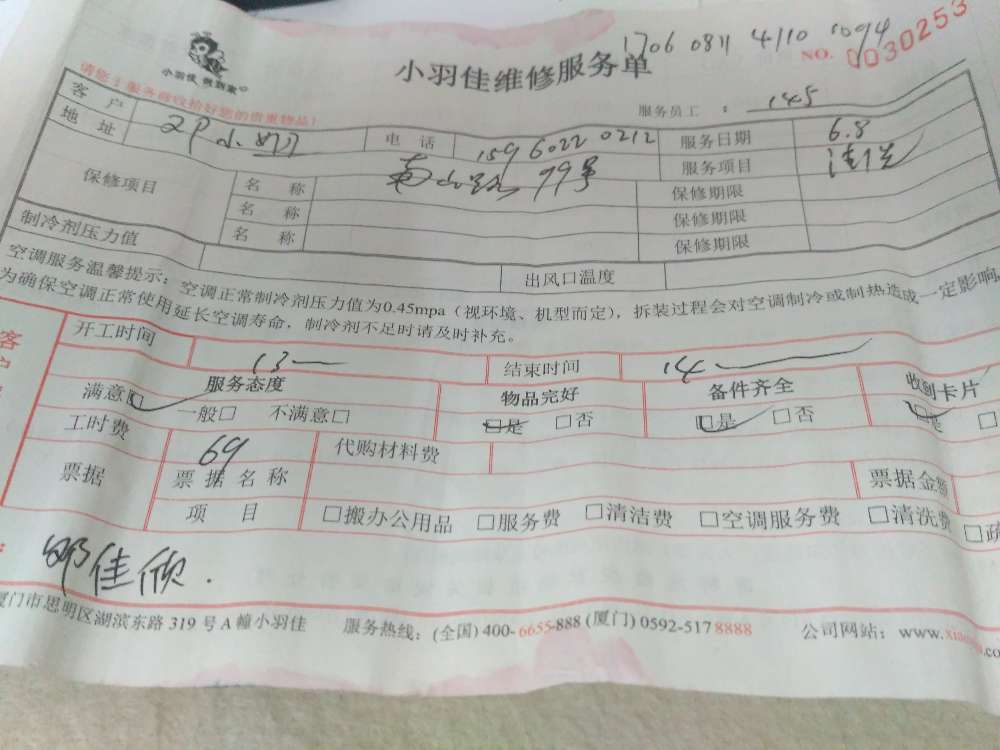 1706 0811 4110 1094
小羽佳 做到家
小羽佳维修服务单
NO. 0030253
请您于服务前收拾好您的贵重物品!
服务员工 : 145
客 户
电 话 159 6022 0212 服务日期 6.8
地 址 南山路 79号 服务项目 清洗
保修项目 名 称 保修期限
名 称 保修期限
名 称 保修期限
制冷剂压力值 出风口温度
空调服务温馨提示:空调正常制冷剂压力值为0.45mpa(视环境、机型而定),拆装过程会对空调制冷或制热造成一定影响
为确保空调正常使用延长空调寿命,制冷剂不足时请及时补充。
开工时间 13 结束时间 14
服务态度 物品完好 备件齐全 收到卡片
满意□ 一般□ 不满意□ □是 □否 □是 □否 □是 □
工时费 69 代购材料费
票据 票 据 名 称 票据金额
项 目 □搬办公用品 □服务费 □清洁费 □空调服务费 □清洗费 □疏
客户
邓佳欣.
厦门市思明区湖滨东路 319 号A幢小羽佳 服务热线:(全国) 400-6655-888 (厦门) 0592-5178888 公司网站:www.